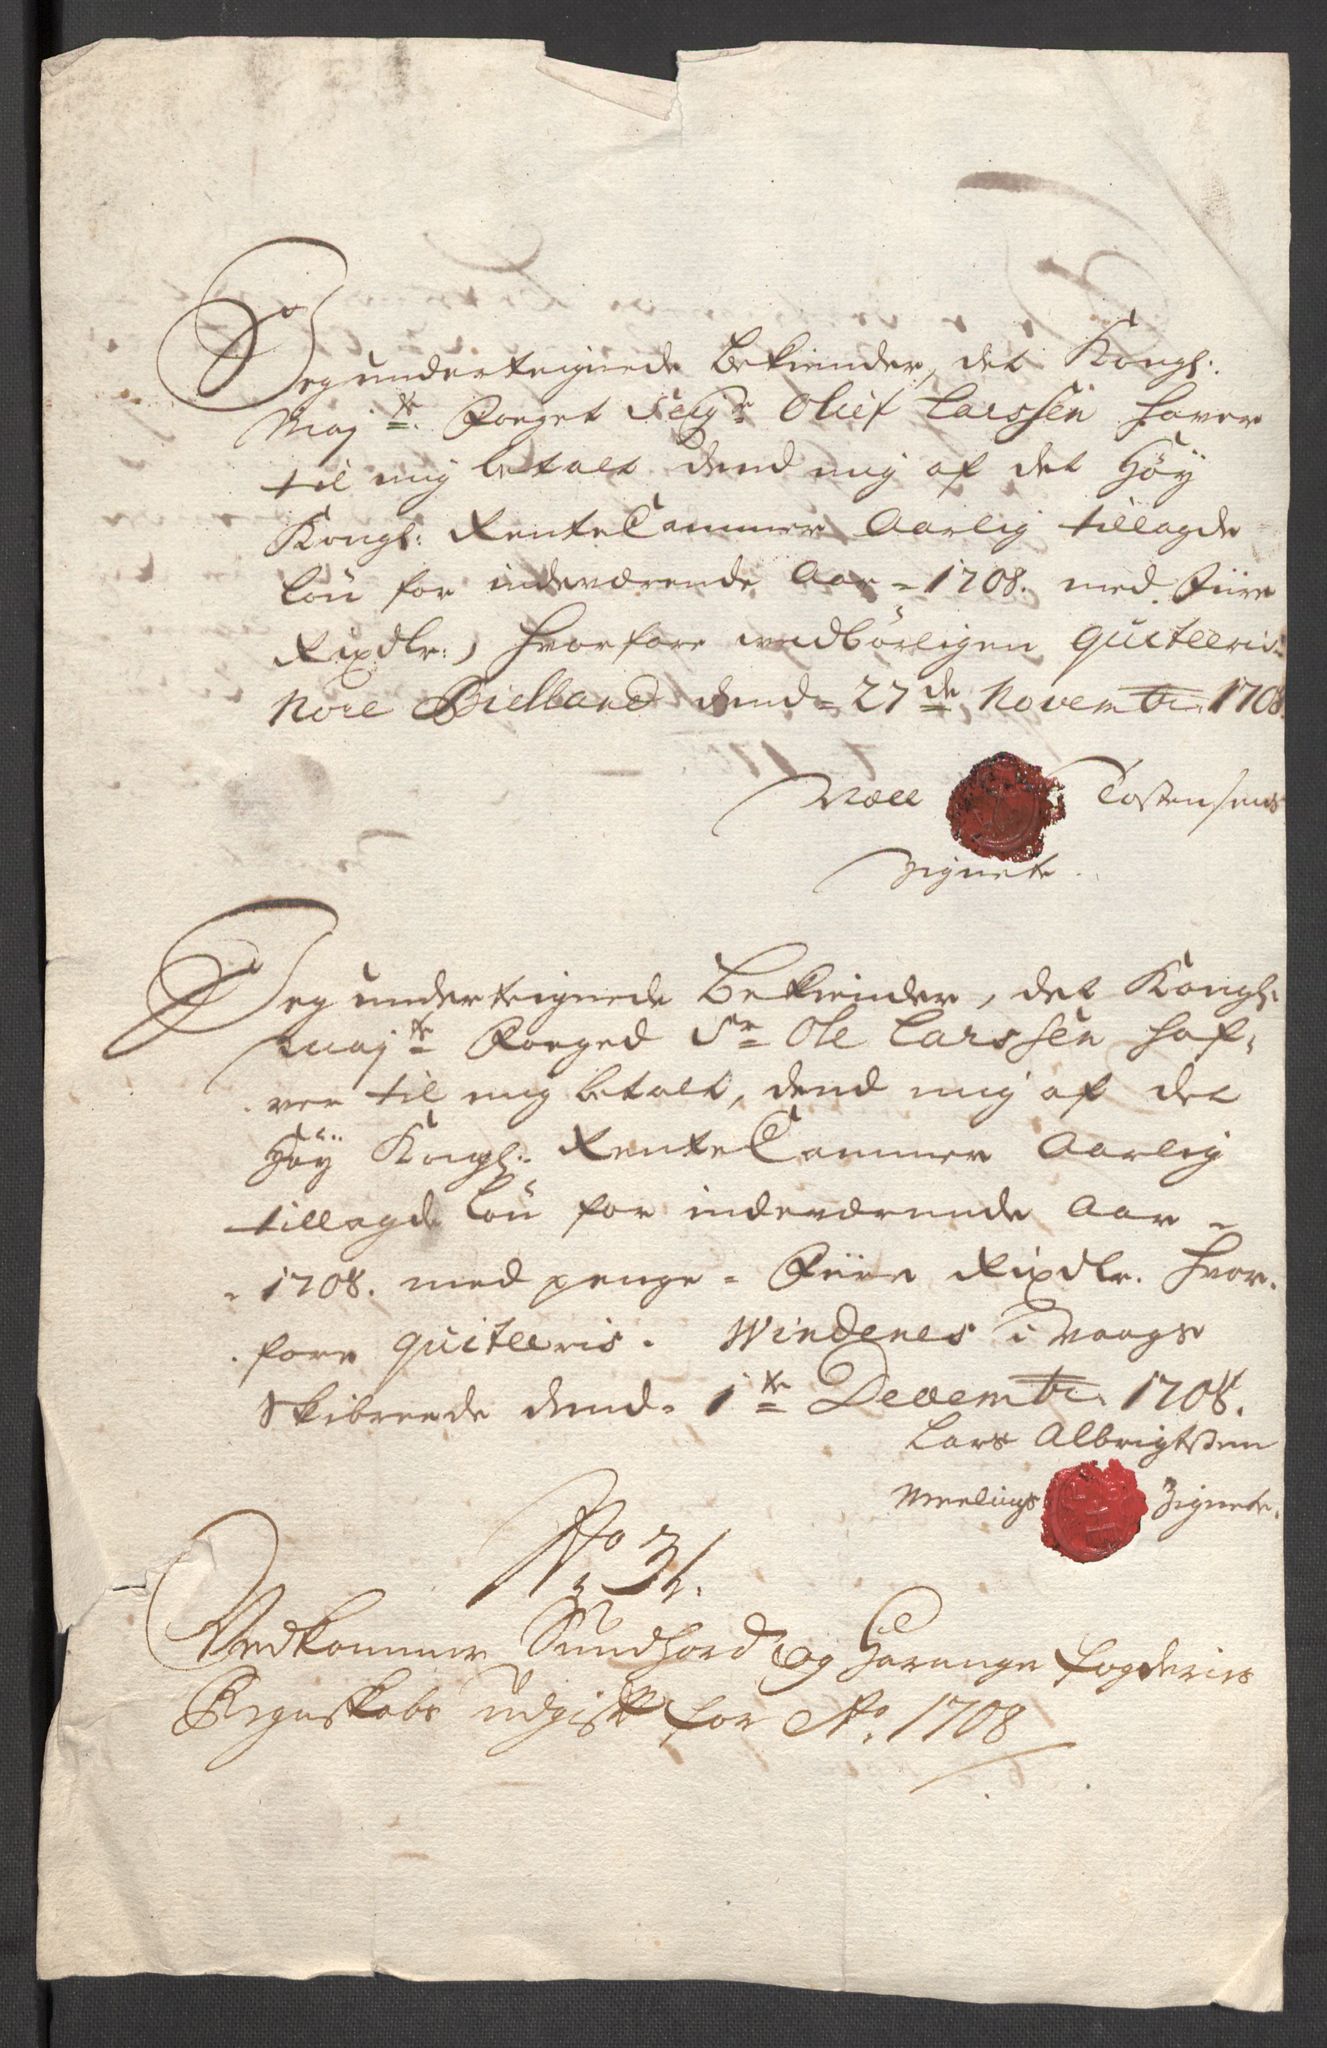 Jeg underteignede bekiender, det Kongl:
Maj.te Foeget Seigr Oluf Larssen haver
til mig betalt dend mig af det Höy
Kongl: RenteCammer Aarlig tillagde
Lön for indeværende Aar = 1708. med Fiire
Rixdlr:, hvorfore wedbörligen quitteris.
Nore Bielland dend = 27de Novembr: 1708.
Tostensens
Zignete.
Jeg underteignede Bekiender, det Kongl:
Maj.te Foeged Sr Ole Larssen haf,
ver til mig betalt, dend mig af det
Höy Kongl: RenteCammer Aarlig
tillagde Lön for indeværende Aar =
= 1708. med penge = Fiire Rixdlr. hvor,
fore quitteris. Windenes i Waags
Skibreede dend = 1te Decembr: 1708.
Lars Albrigtsen
Meelings Zignete.
No 31.
Vedkommer Sundhord og Harange fogderies
Regnskabs udgift for Ao. 1708